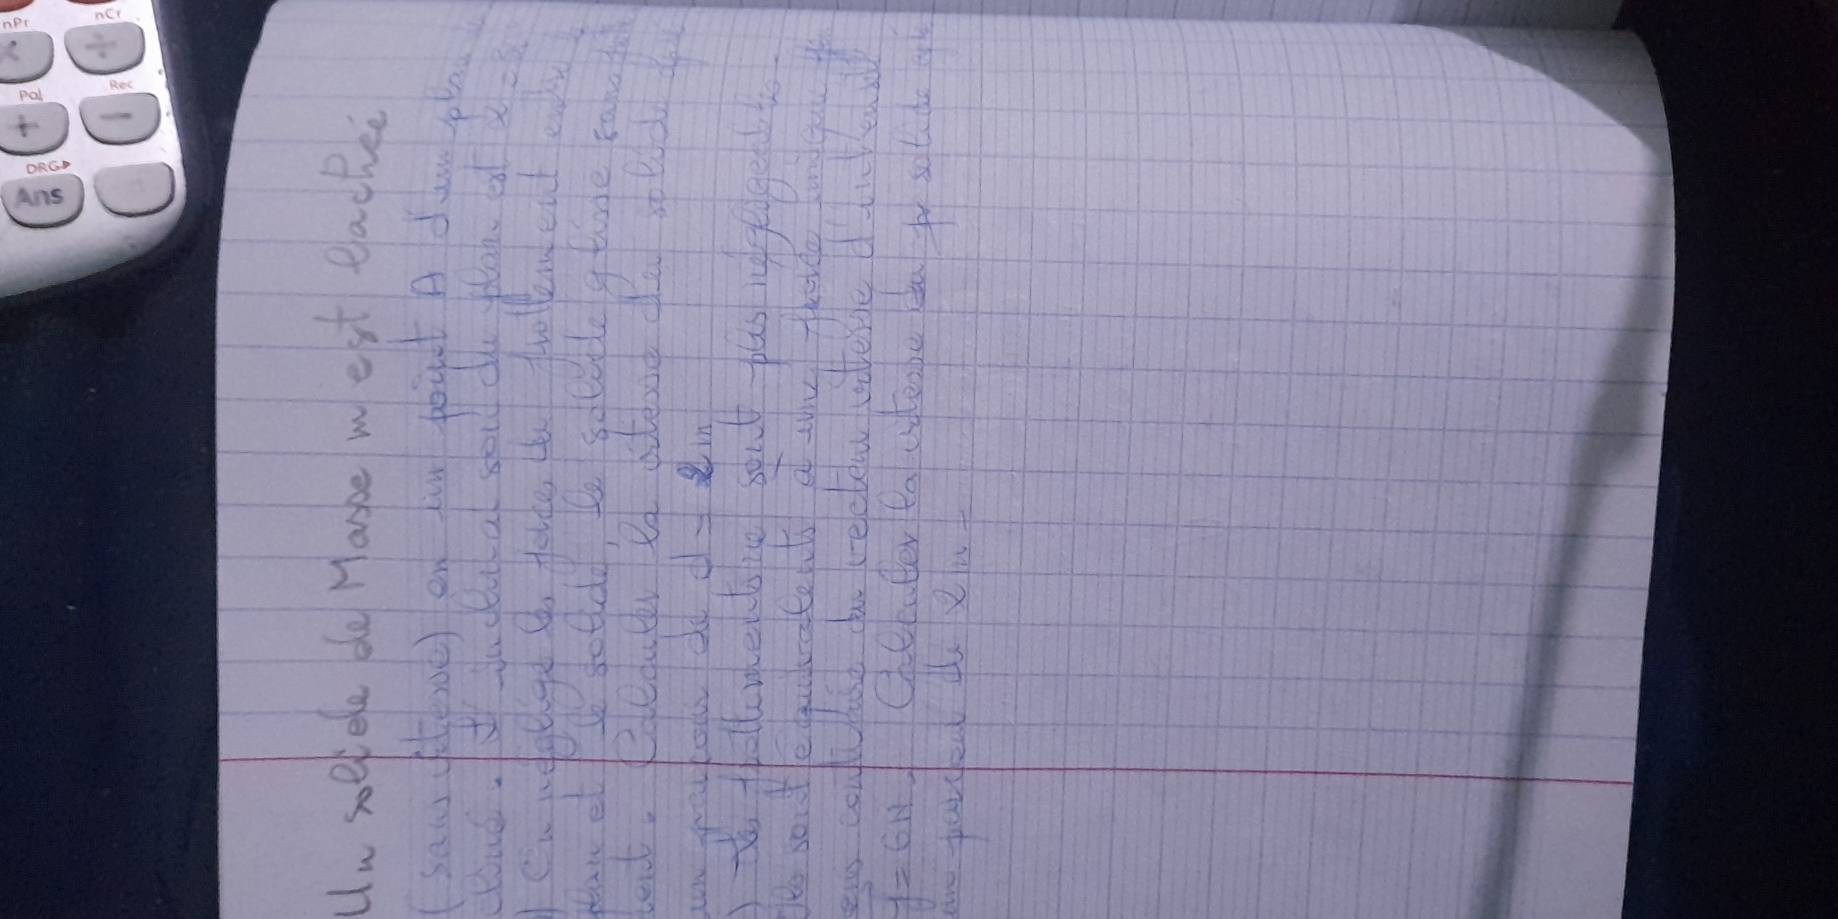 Un solide de Masse m est lachée
(sans vitesse) en un point A d'un plan
cliné. l'inclinai soit du plan est α = 3
1) On néglige les forces de frottement entre
plan et le solide, le solide glisse sans
ment. Calculer la vitesse du solide
un parcours de d = 2 m
) les frottements ne sont plus négligeables.
ils sont équivalents à une force unique
sens contraire du vecteur vitesse d'intensité
f = 6N. Calculer la vitesse du solide
un parcours de 2 m.
nPr
nCr
÷
Pol
Rec
+
−
DRG▸
Ans
=